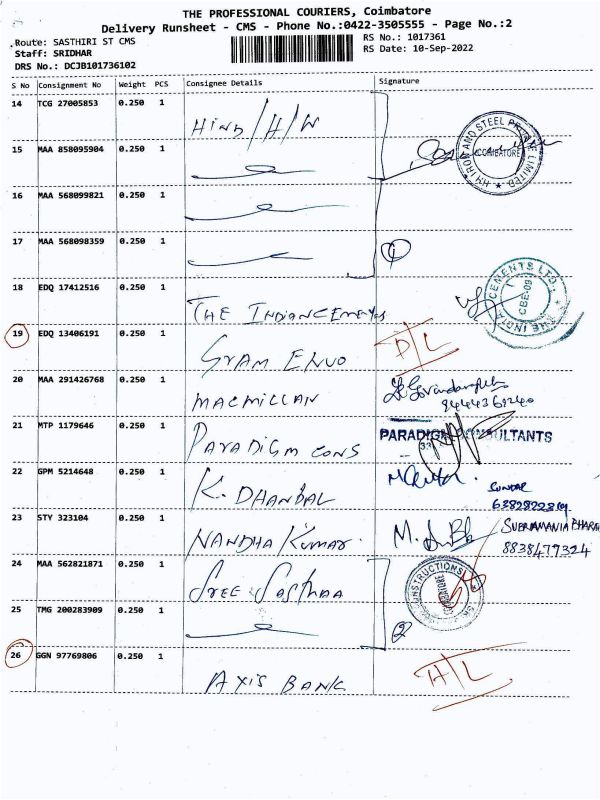 THE PROFESSIONAL COURIERS, Coimbatore
Delivery Runsheet - CMS - Phone No.:0422-3505555 - Page No.:2
Route: SASTHIRI ST CMS
Staff: SRIDHAR
DRS No.: DCJB101736102
RS No.: 1017361
RS Date: 10-Sep-2022
S No Consignment No Weight PCS Consignee Details Signature
14 TCG 27005853 0.250 1 HIND/H/W
15 MAA 858095904 0.250 1 IRON AND STEEL PRIVATE LIMITED COIMBATORE
16 MAA 568099821 0.250 1
17 MAA 568098359 0.250 1
18 EDQ 17412516 0.250 1 THE INDIANCEMENTS THE INDIA CEMENTS LTD. CBE-09
19 EDQ 13406191 0.250 1 D/L
20 MAA 291426768 0.250 1 MACMILLAN
21 MTP 1179646 0.250 1 PARADIGM CONS PARADIGM CONSULTANTS
22 GPM 5214648 0.250 1 K. DHANBAL
23 STY 323104 0.250 1 NANDHA KUMAR. 8838479324
24 MAA 562821871 0.250 1 SREE SASTHAA CONSTRUCTIONS
25 TMG 200283909 0.250 1 2
26 GGN 97769806 0.250 1 AXIS BANK H/L